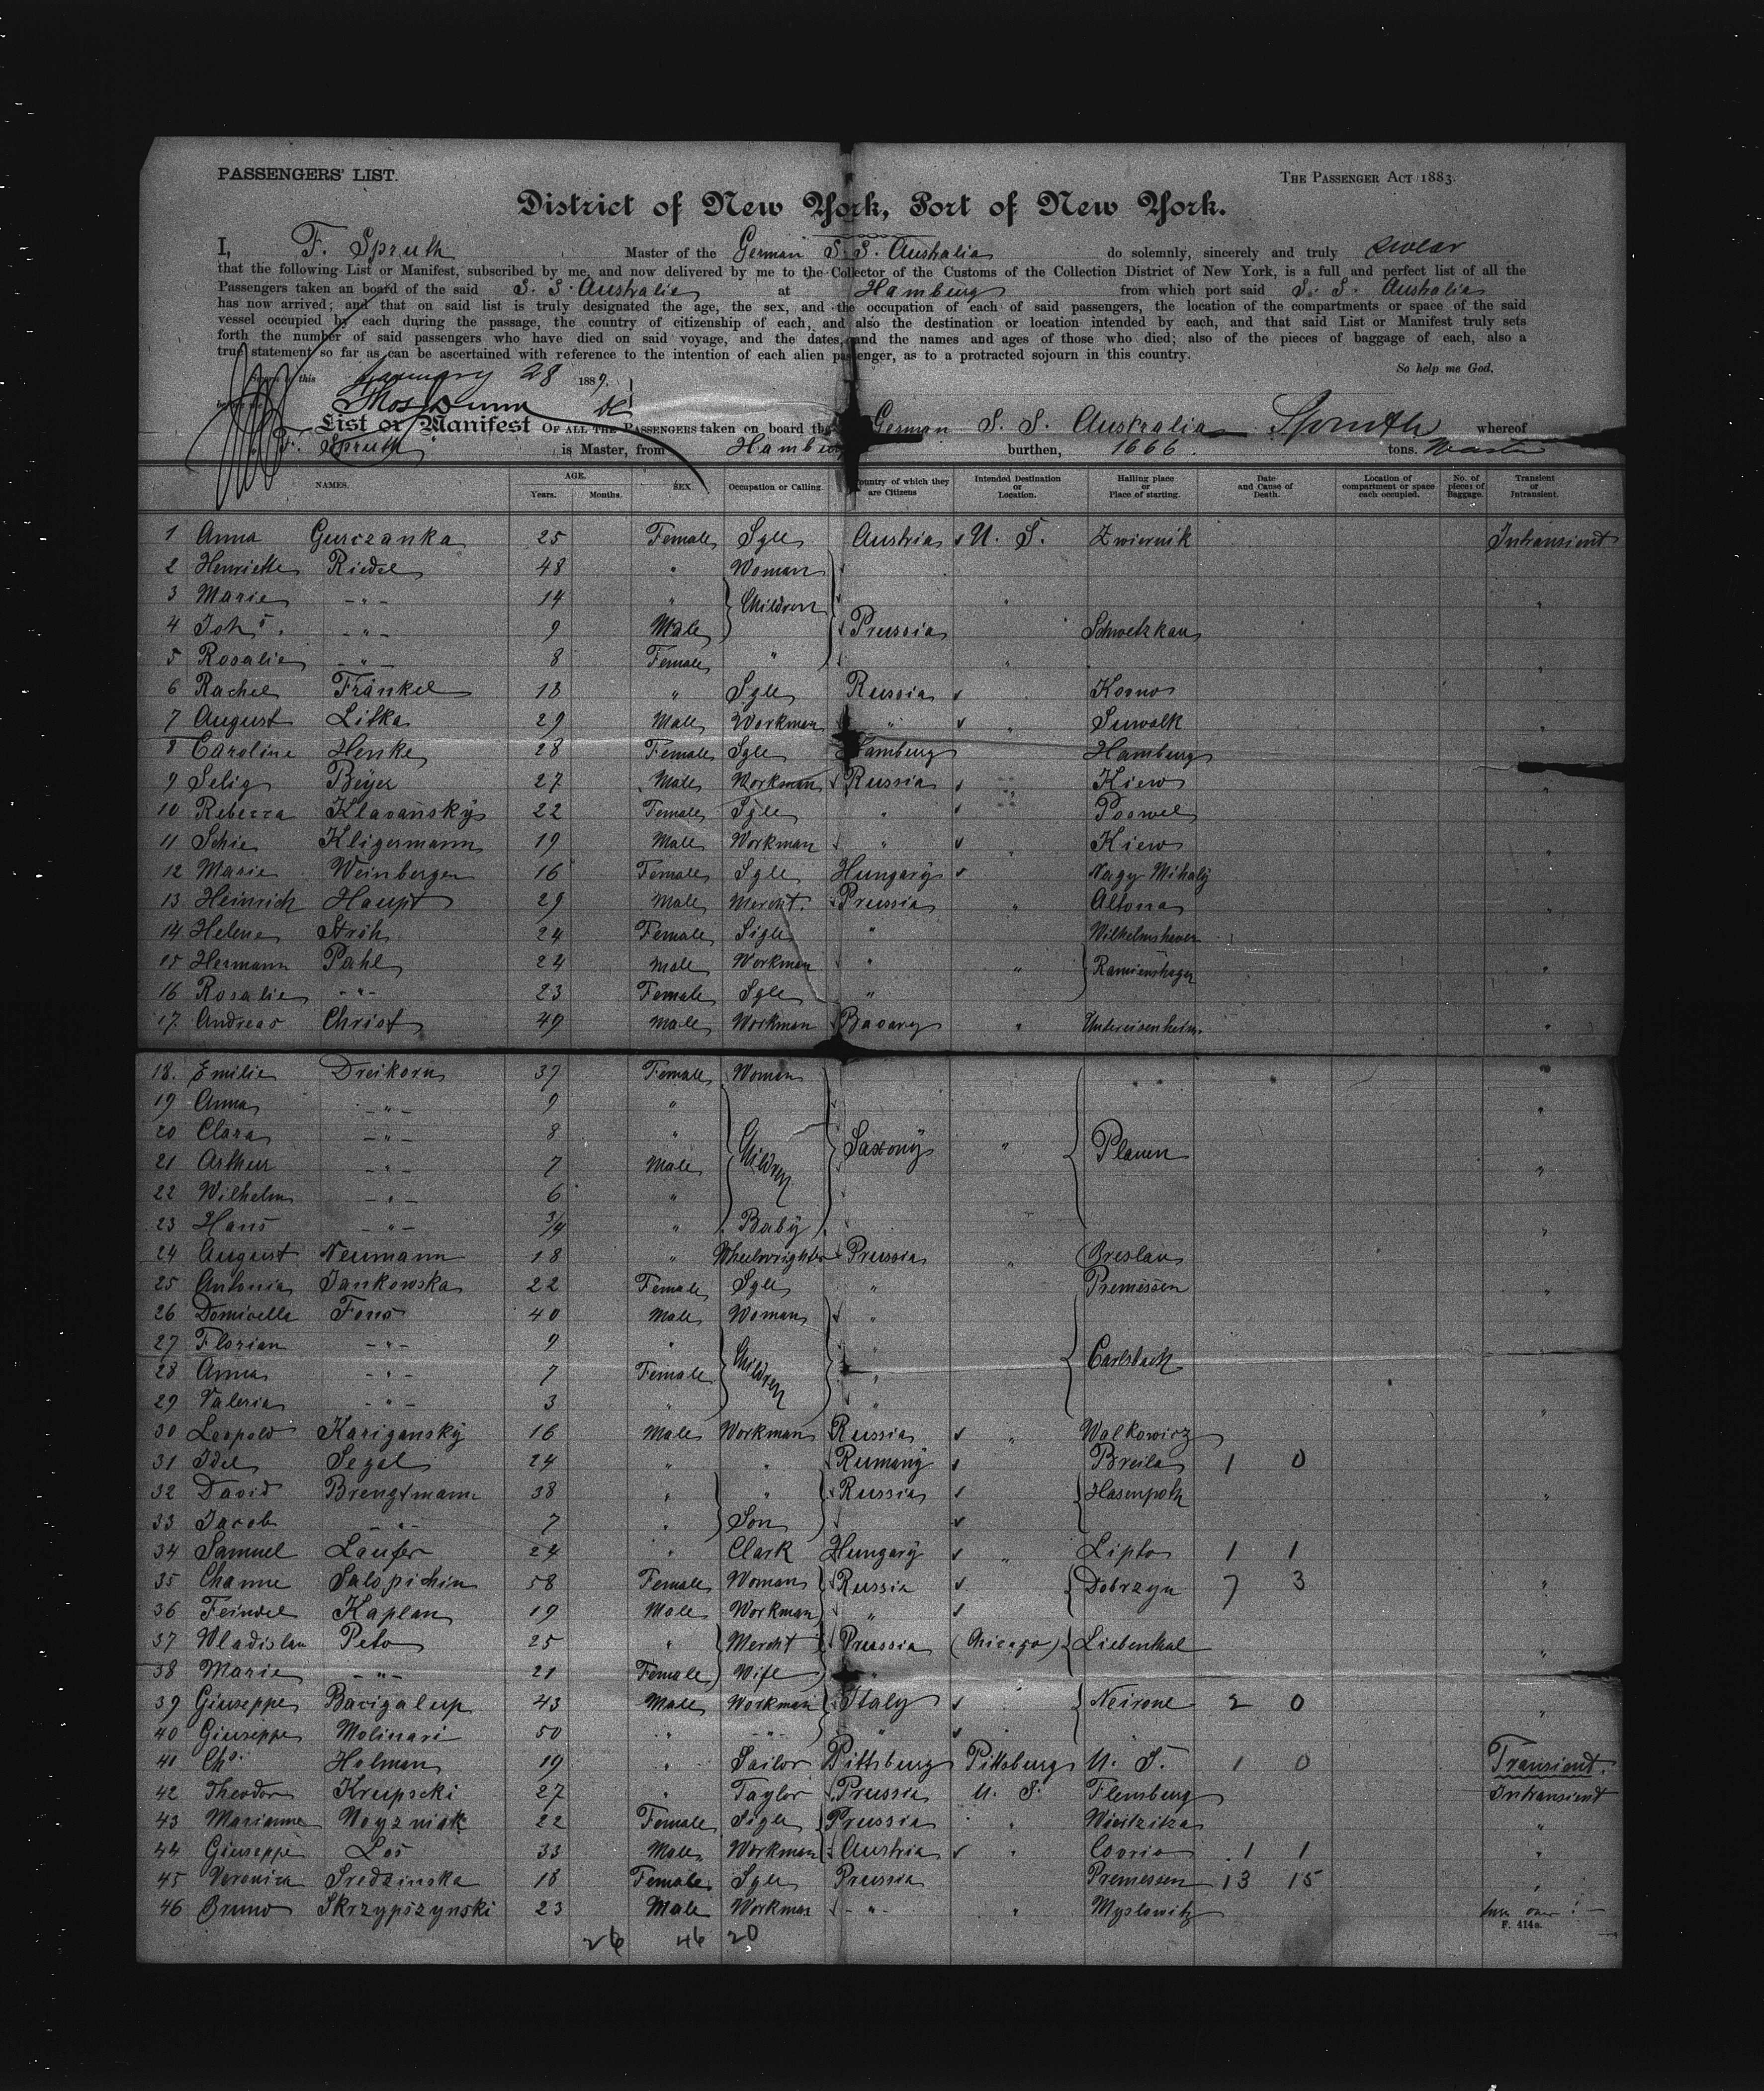 PASSENGERS' LIST.
THE PASSENGER ACT 1883.
District of New York, Port of New York.
I, F. Spruth Master of the German S. S. Australia do solemnly, sincerely and truly swear
that the following List or Manifest, subscribed by me, and now delivered by me to the Collector of the Customs of the Collection District of New York, is a full and perfect list of all the
Passengers taken an board of the said S. S. Australia at Hamburg from which port said S. S. Australia
has now arrived; and that on said list is truly designated the age, the sex, and the occupation of each of said passengers, the location of the compartments or space of the said
vessel occupied by each during the passage, the country of citizenship of each, and also the destination or location intended by each, and that said List or Manifest truly sets
forth the number of said passengers who have died on said voyage, and the dates, and the names and ages of those who died; also of the pieces of baggage of each, also a
true statement so far as can be ascertained with reference to the intention of each alien passenger, as to a protracted sojourn in this country.
So help me God.
this January 28 1889.
Thos Dunn
List or Manifest OF ALL THE PASSENGERS taken on board the German S. S. Australia Spruth whereof
F. Spruth is Master, from Hamburg burthen, 1666. tons. Master
NAMES. AGE. Years. Months. SEX. Occupation or Calling. Country of which they are Citizens Intended Destination or Location. Halling place or Place of starting. Date and Cause of Death. Location of compartment or space each occupied. No. of pieces of Baggage. Transient or Intransient.
1 Anna Gurczanka 25 Female Sgle Austria U. S. Zwiernik Intransient
2 Henriette Riedel 48 " Woman
3 Marie -"- 14 " Children " "
4 Joh s. -"- 9 Male Prussia Schwetzkau
5 Rosalie -"- 8 Female " " "
6 Rachel Fränkel 18 " Sgle Russia Kowno
7 August Litka 29 Male Workman " " Suwalk "
8 Caroline Henke 28 Female Sgle Hamburg Hamburg
9 Selig Beyer 27 Male Workman Russia " Kiew "
10 Rebecca Klavansky 22 Female Sgle " Poswel
11 Schie Kligermann 19 Male Workman " " Kiew "
12 Marie Weinberger 16 Female Sgle Hungary Nagy Mihaly
13 Heinrich Haupt 29 Male Mercht. Prussia " Altona "
14 Helene Ströh 24 Female Sigle " Wilhelmshaven
15 Hermann Pahl 24 Male Workman " " Ramienshagen "
16 Rosalie -"- 23 Female Sgle "
17. Andreas Christ 49 Male Workman Bavary " Untereisenheim. "
18. Emilie Dreikorn 37 Female Woman
19 Anna -"- 9 " "
20 Clara -"- 8 " Children Saxony " Plauen
21 Arthur -"- 7 Male "
22 Wilhelm -"- 6 "
23 Hans -"- 3/4 " Baby "
24 August Neumann 18 " Wheelwrighter Prussia " Breslau
25 Antonia Jankowska 22 Female Sgle " Premessen "
26 Domicella Fons 40 Male Woman "
27 Florian -"- 9 " Children "
28 Anna -"- 7 Female " Carlsbach
29 Valeria -"- 3 " " "
30 Leopold Kariganský 16 Male Workman Russia " Walkowicz
31 Idel Segal 24 " " Rumany Breila 1 0
32 David Brengtmann 38 " " Russia Hasenpoth "
33 Jacob -"- 7 " Son
34 Samuel Laufer 24 " Clark Hungary " Lipto 1 1
35 Channe Salopichin 58 Female Woman Russia Dobrzyn 7 3 "
36 Feindel Kaplan 19 Male Workman "
37 Wladislau Peto 25 " Mercht Prussia (Chicago) Liebenthal "
38 Marie -"- 21 Female Wife "
39 Giuseppe Bacigalup 43 Male Workman Italy Neirone 2 0 "
40 Giuseppe Molinari 50 " -"- "
41 Chs. Holman 19 " Sailor Pittsburg Pittsburg U. S. 1 0 Transient.
42 Theodor Krupscki 27 " Taylor Prussia U. S. Flensburg Intransient
43 Marianne Woyzniak 22 Female Sigle Prussia " Wieitzitza "
44 Giuseppe Los 33 Male Workman Austria " Covrio 1 1 "
45 Veronica Sredzinska 18 Female Sgle Prussia Premessen 13 15 "
46 Bruno Skrzypszynski 23 Male Workman -"- " Myslowitz turn over!
F. 414a.
26 46 20